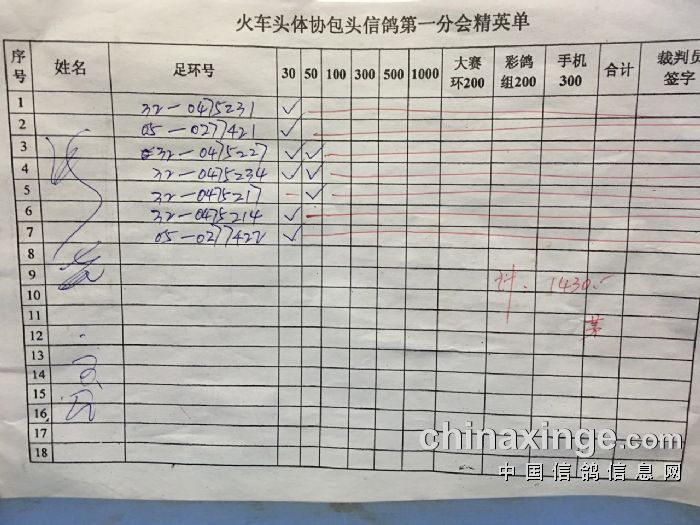 火车头体协包头信鸽第一分会精英单
序号 姓名 足环号 30 50 100 300 500 1000 大赛环200 彩鸽组200 手机300 合计 裁判员签字
1 32-0475231 ✓
2 05-0277421 ✓
3 32-0475227 ✓ ✓
4 32-0475234 ✓ ✓
5 32-0475217 - ✓
6 32-0475214 ✓
7 05-0277422 ✓
8
9 计: 1430.-
10
11
12
13
14
15
16
17
18
chinaxinge.com
中国信鸽信息网